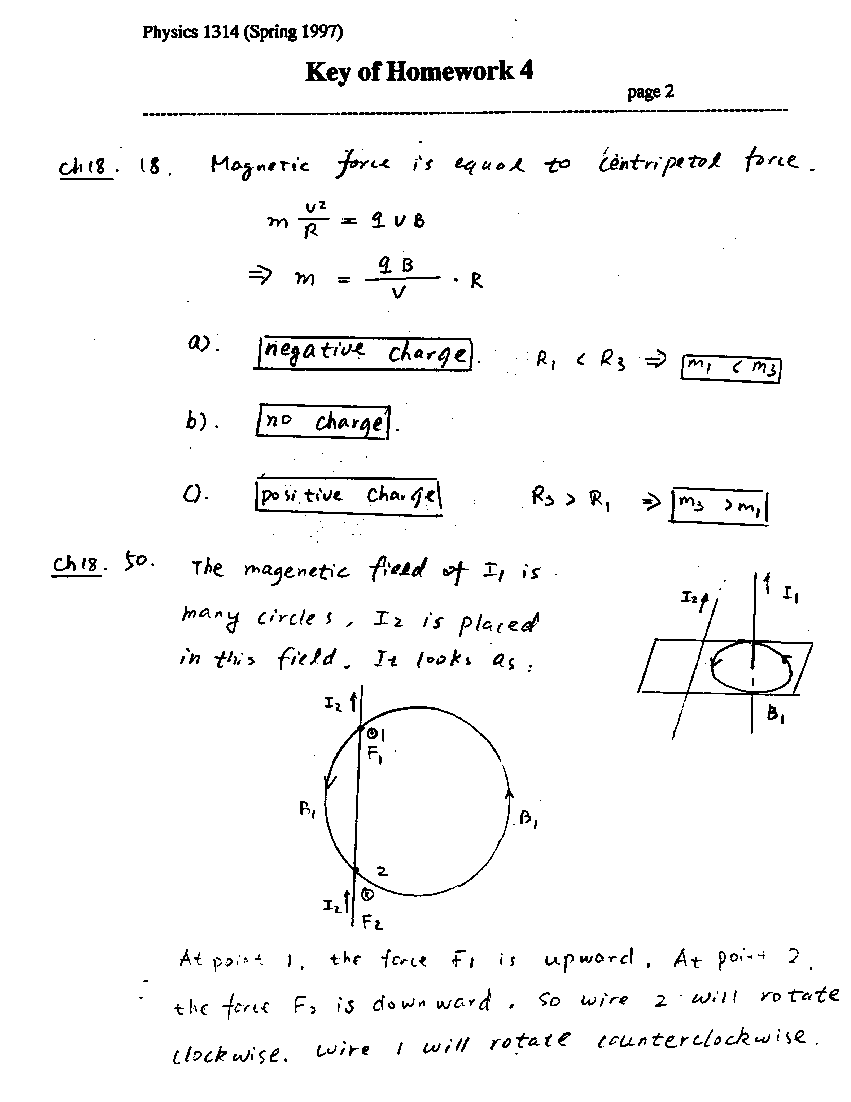 Physics 1314 (Spring 1997)
Key of Homework 4
page 2
Ch18. 18. Magnetic force is equal to centripetal force.
m v²/R = q v B
⇒ m = qB/v · R
a). negative charge. R₁ < R₃ ⇒ m₁ < m₃
b). no charge.
c). positive charge R₃ > R₁ ⇒ m₃ > m₁
Ch18. 50. The magenetic field of I₁ is
many circles, I₂ is placed
in this field. It looks as:
I₂ I₁
B₁
I₂
⊙1
F₁
B₁ B₁
2
⊗
I₂ F₂
At point 1, the force F₁ is upward. At point 2,
the force F₂ is downward. So wire 2 will rotate
clockwise. wire 1 will rotate counterclockwise.